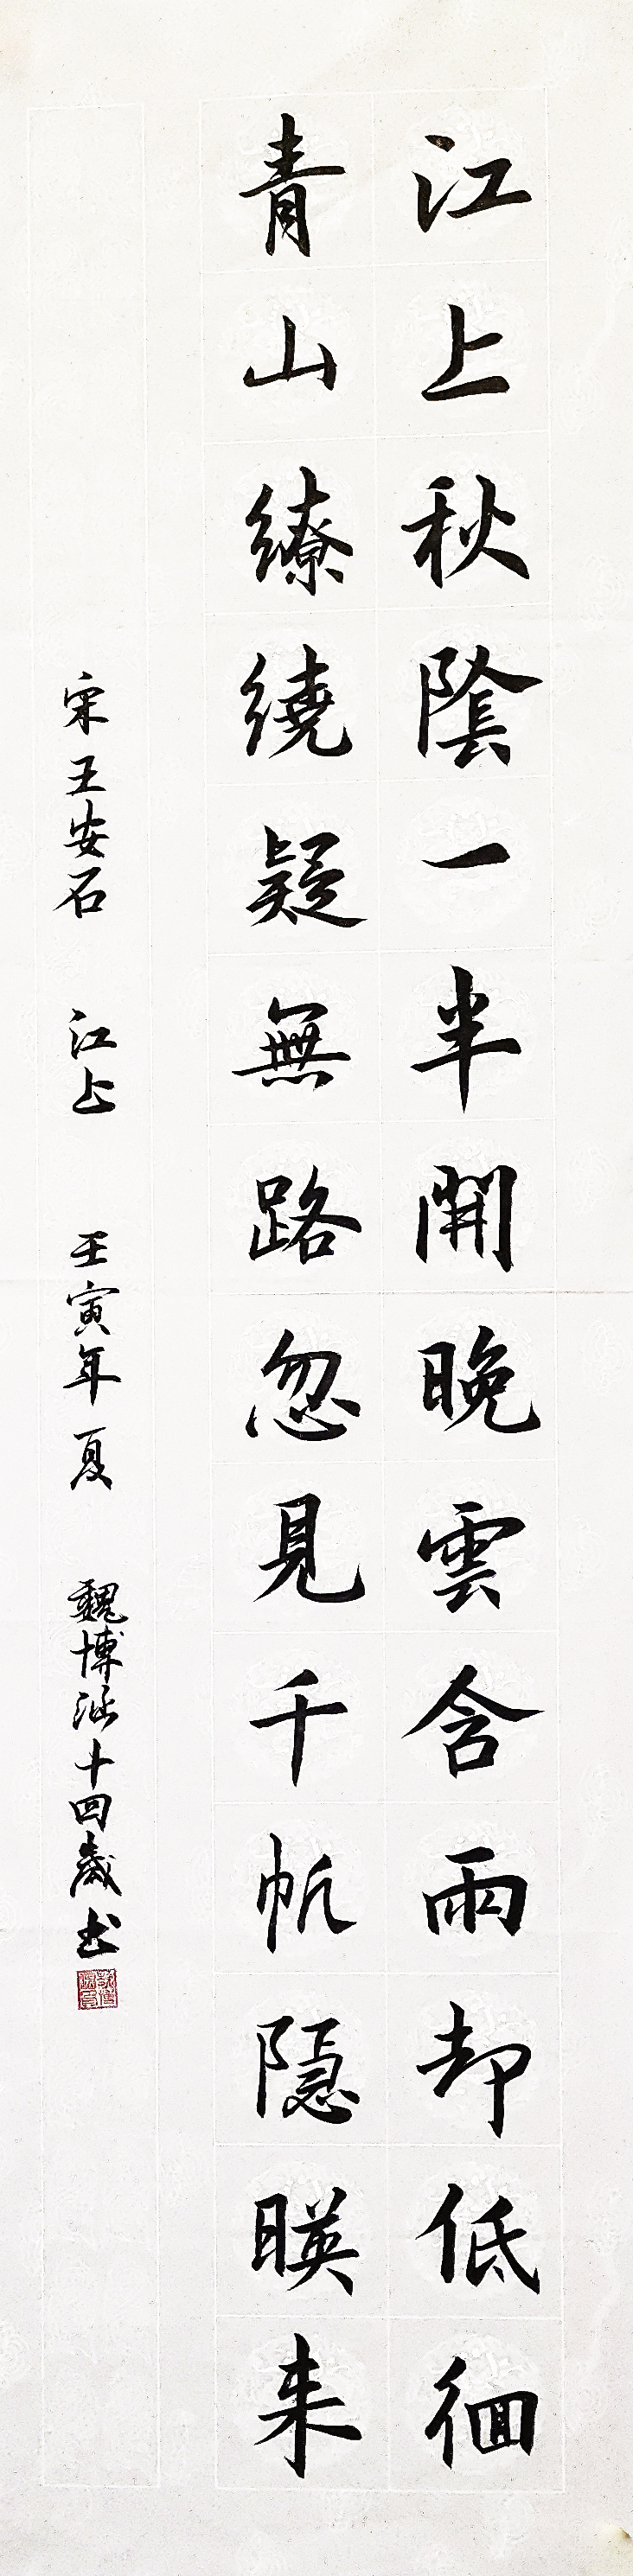 江上秋陰一半開晚雲含雨却低徊
青山繚繞疑無路忽見千帆隱暎来
宋王安石 江上 壬寅年夏 魏博涵十四歲书